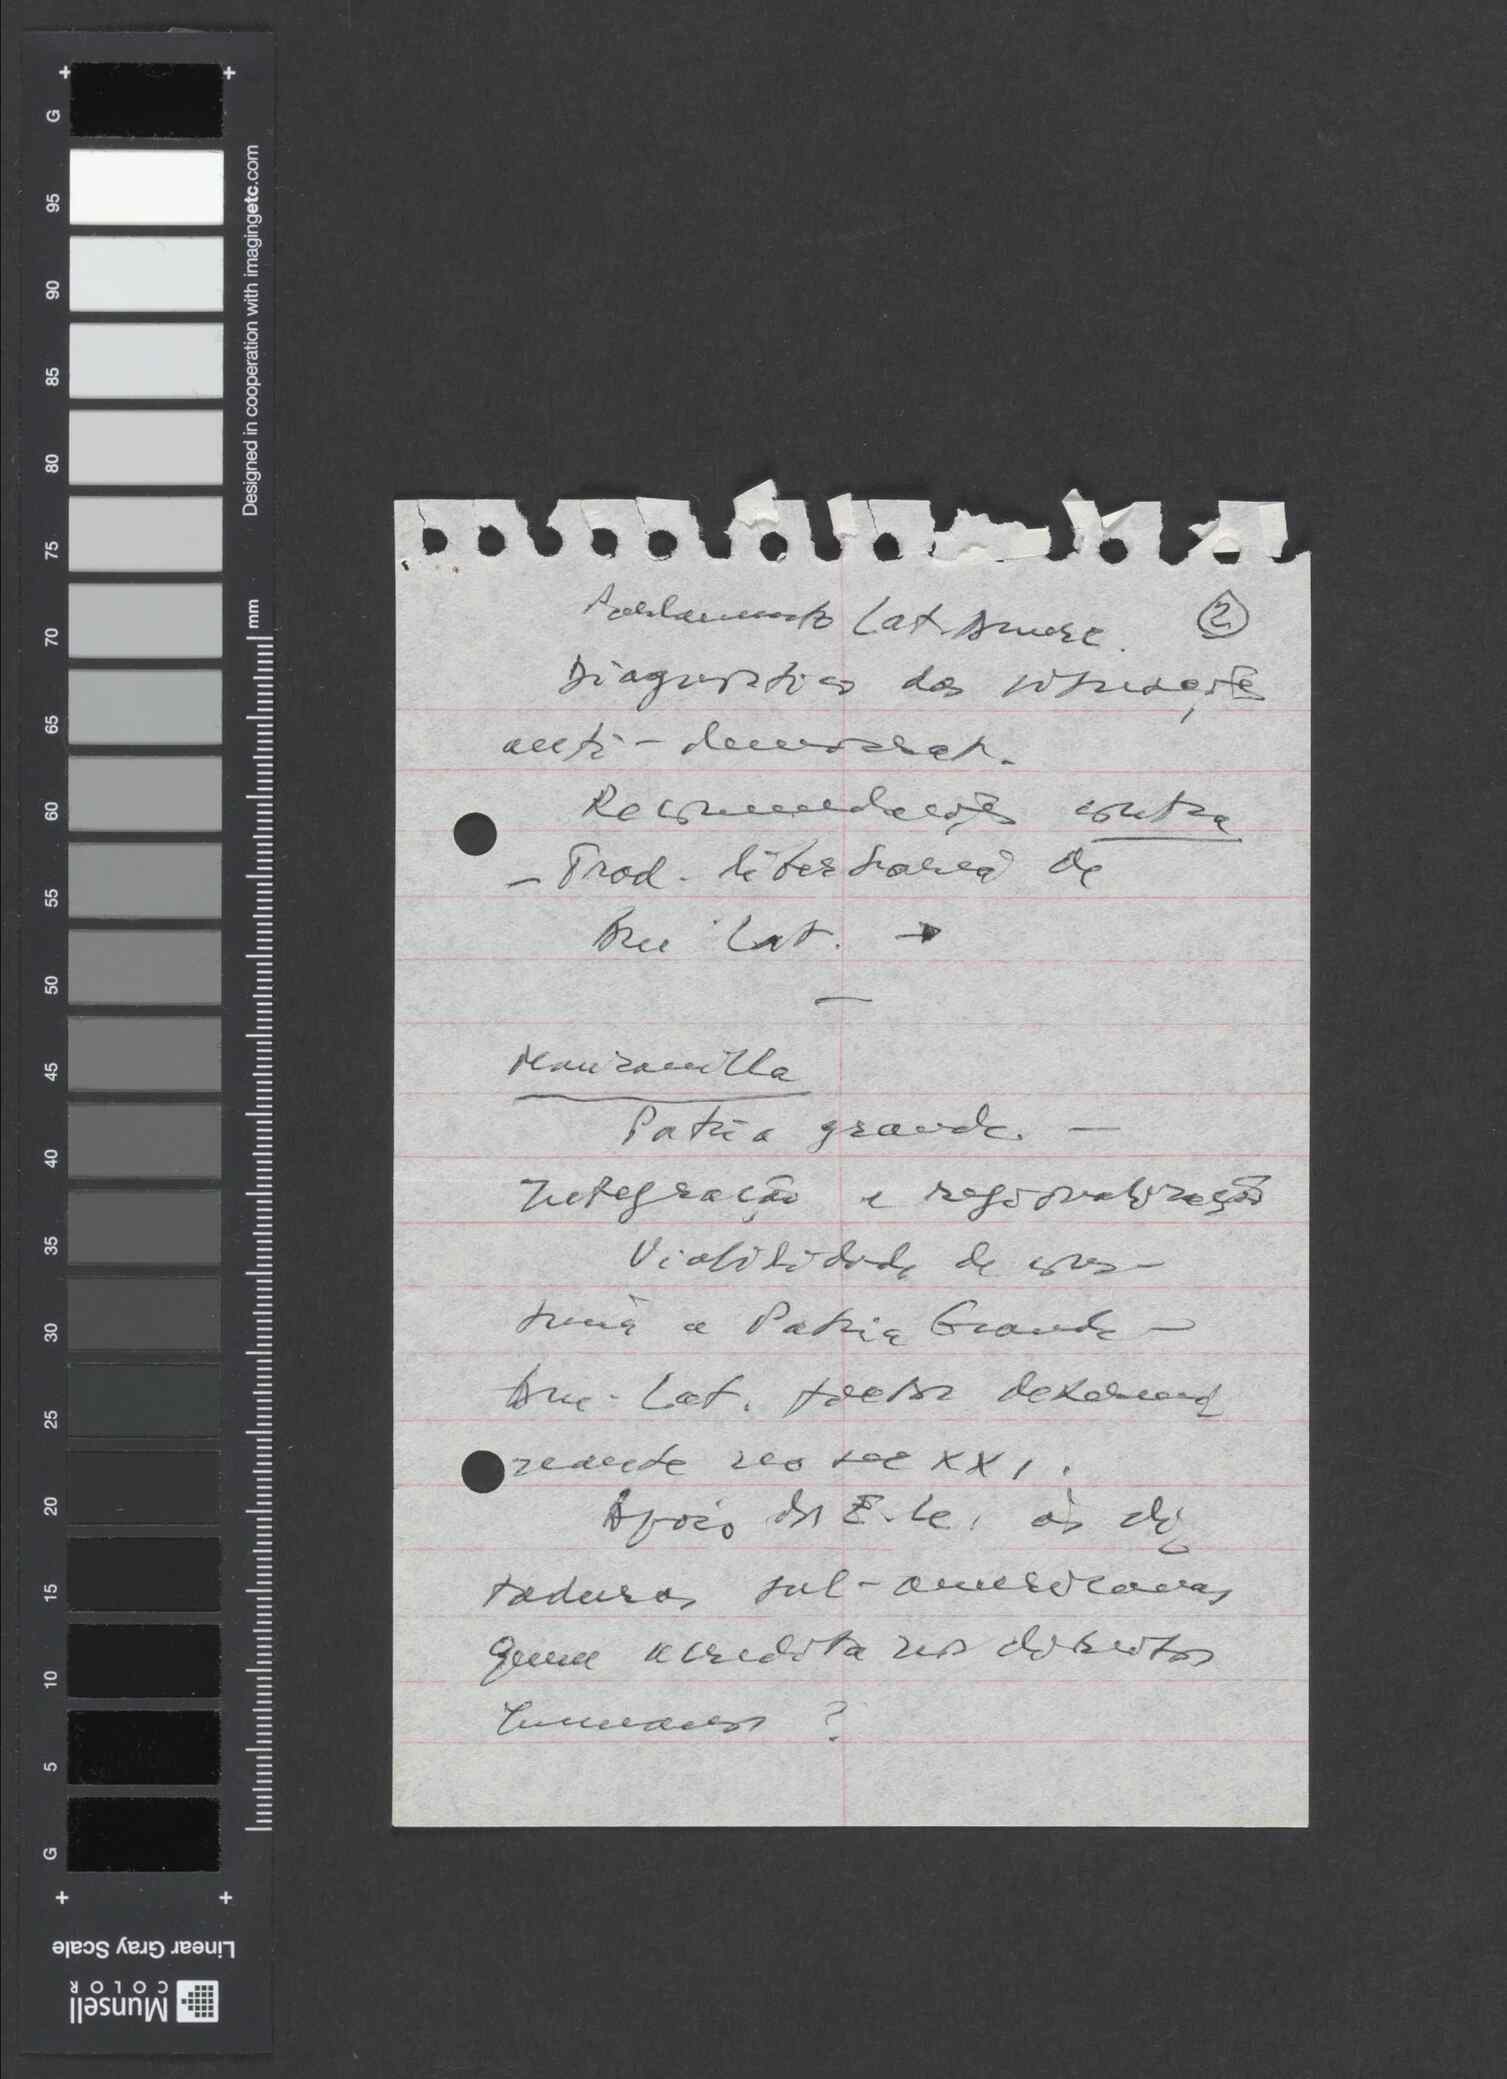 G
95
90
85
80
75
70
65
60
55
50
45
40
35
30
25
20
15
10
5
G
Designed in cooperation with imagingetc.com
mm
Linear Gray Scale
Munsell
COLOR
Parlamento Lat. Americ. 2
Diagnostico das situações
anti-democrat.
Recomendações contra
- Trad. libertaria de
Am Lat. →
—
Manzanilla
Patria grande. —
Integração e regionalização
Viabilidade de cons-
truir a Patria Grande —
Am. Lat. fator determi
nante no sec XXI.
Apoio dos E.U. às di
taduras sul-americanas
Quem acredita nos direitos
humanos ?